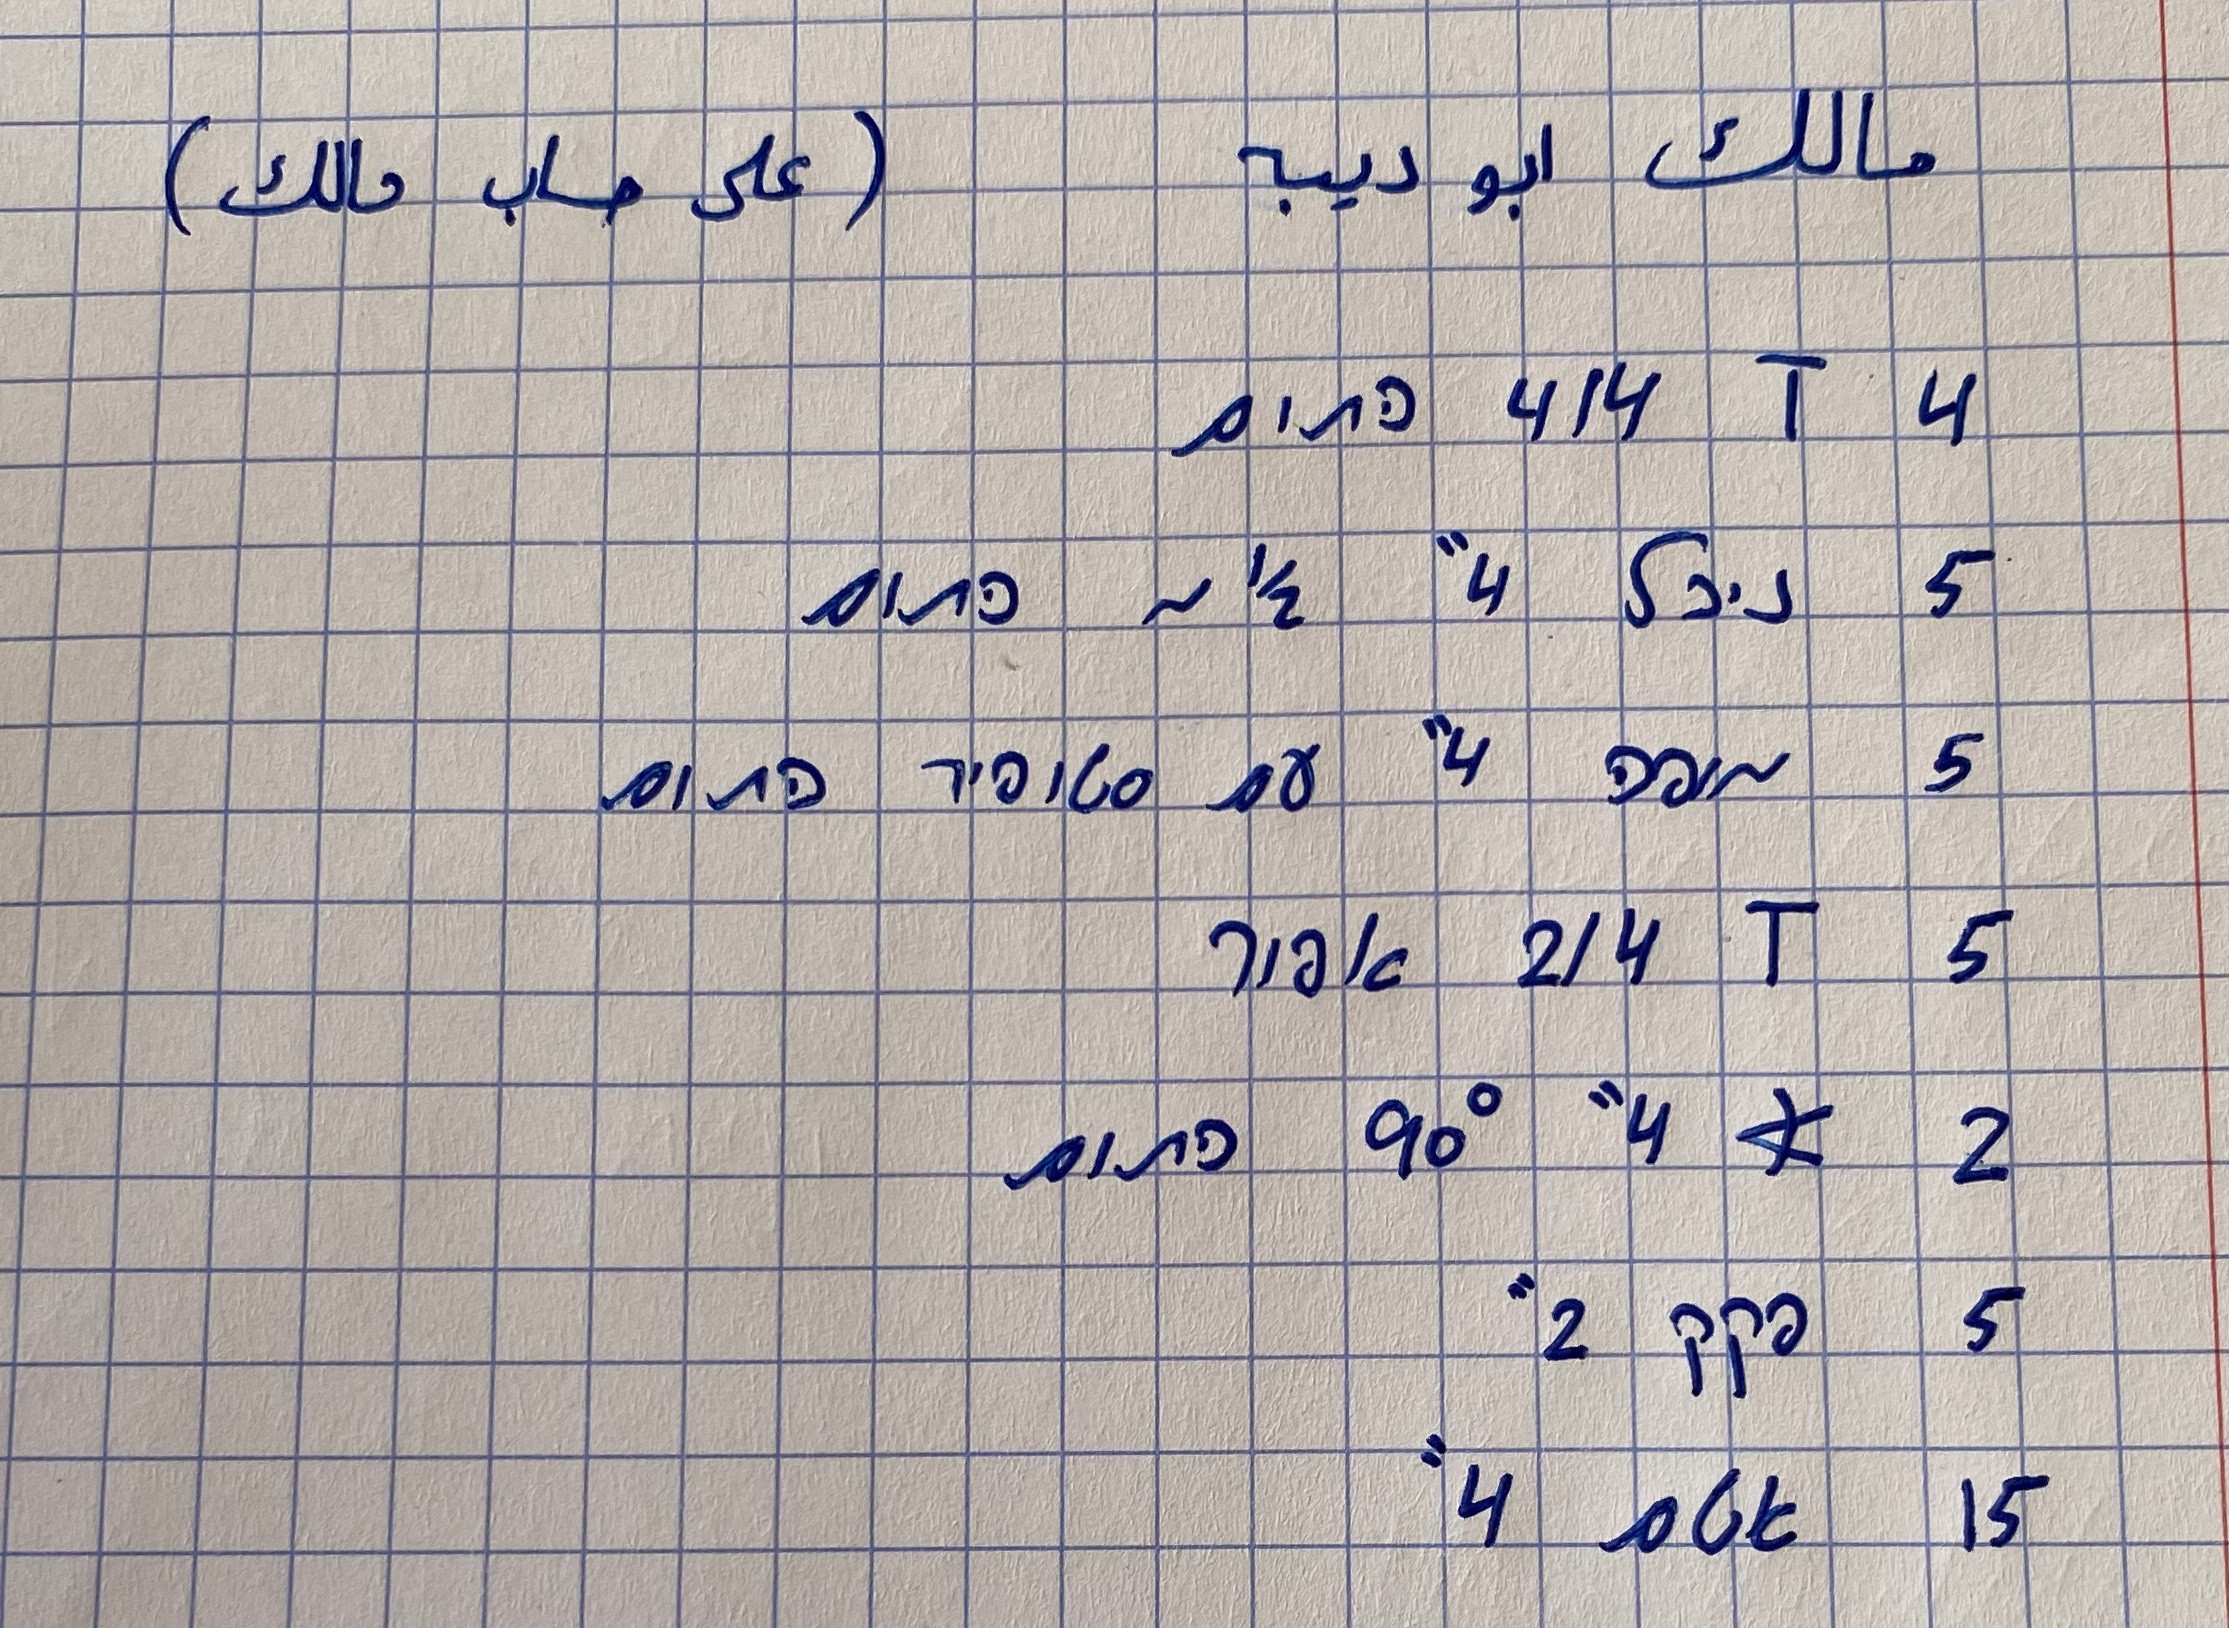 مالك ابو ديبه (على حساب مالك)
4 T 4/4 כתום
5 ניפל 4" ½ מ כתום
5 מופה 4" עם סטופיר כתום
5 T 2/4 אפור
2 ⚹ 4" 90° כתום
5 פקק 2"
15 אטם 4"